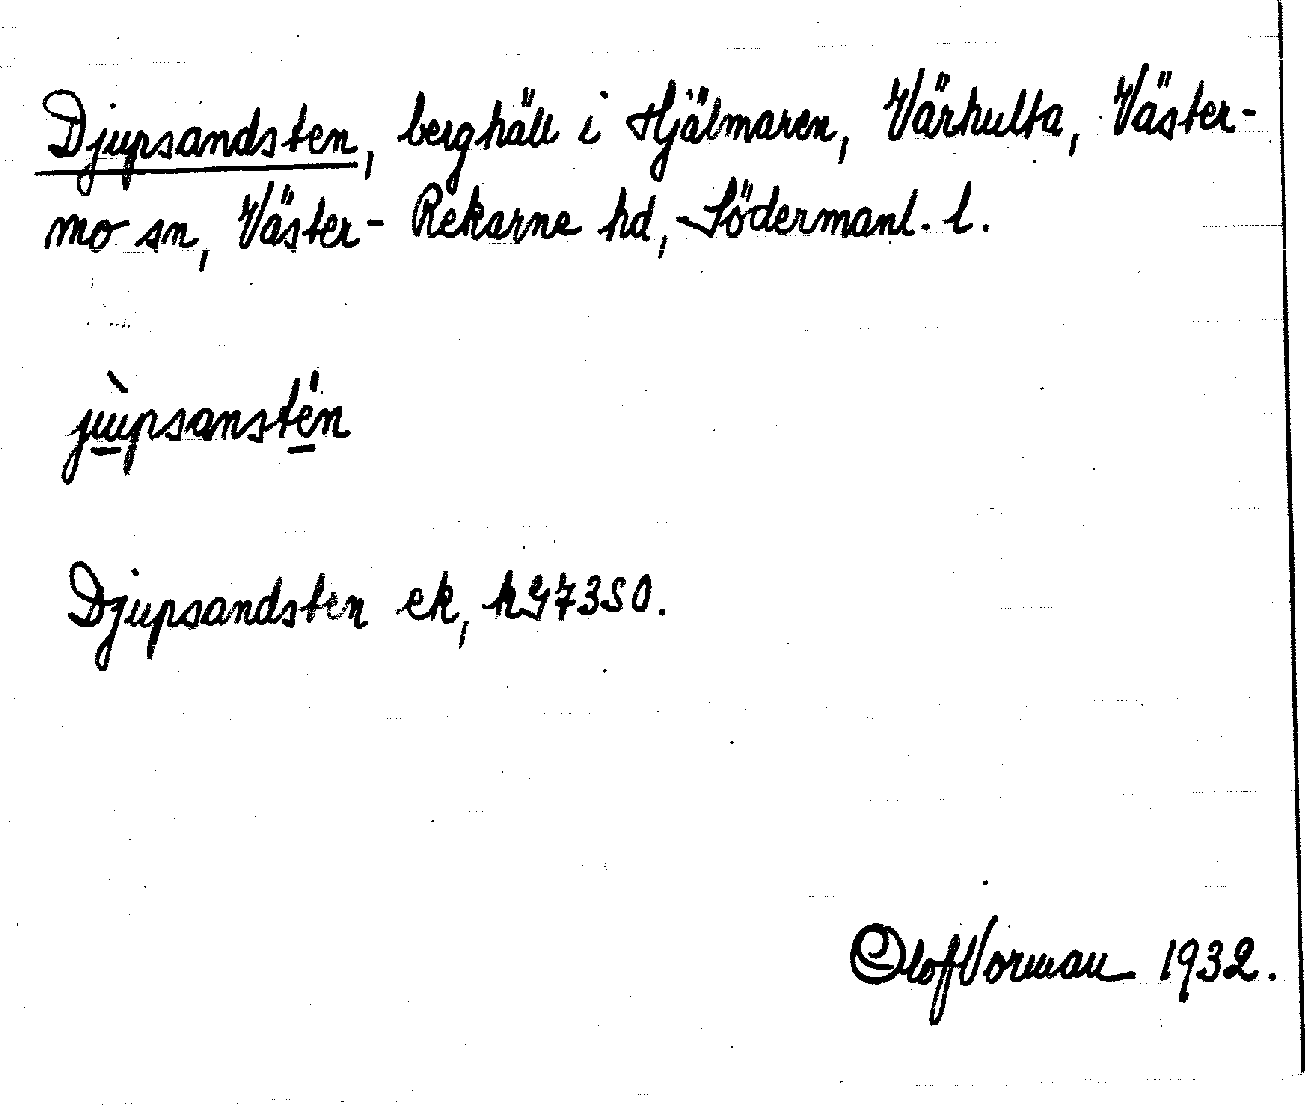 Djupsandsten, berghäll i Hjälmaren, Värhulta, Väster-
mo sn, Väster-Rekarne hd, Södermanl. l.
jùpsanstén
Djupsandsten ek,
Olof Vorman 1932.